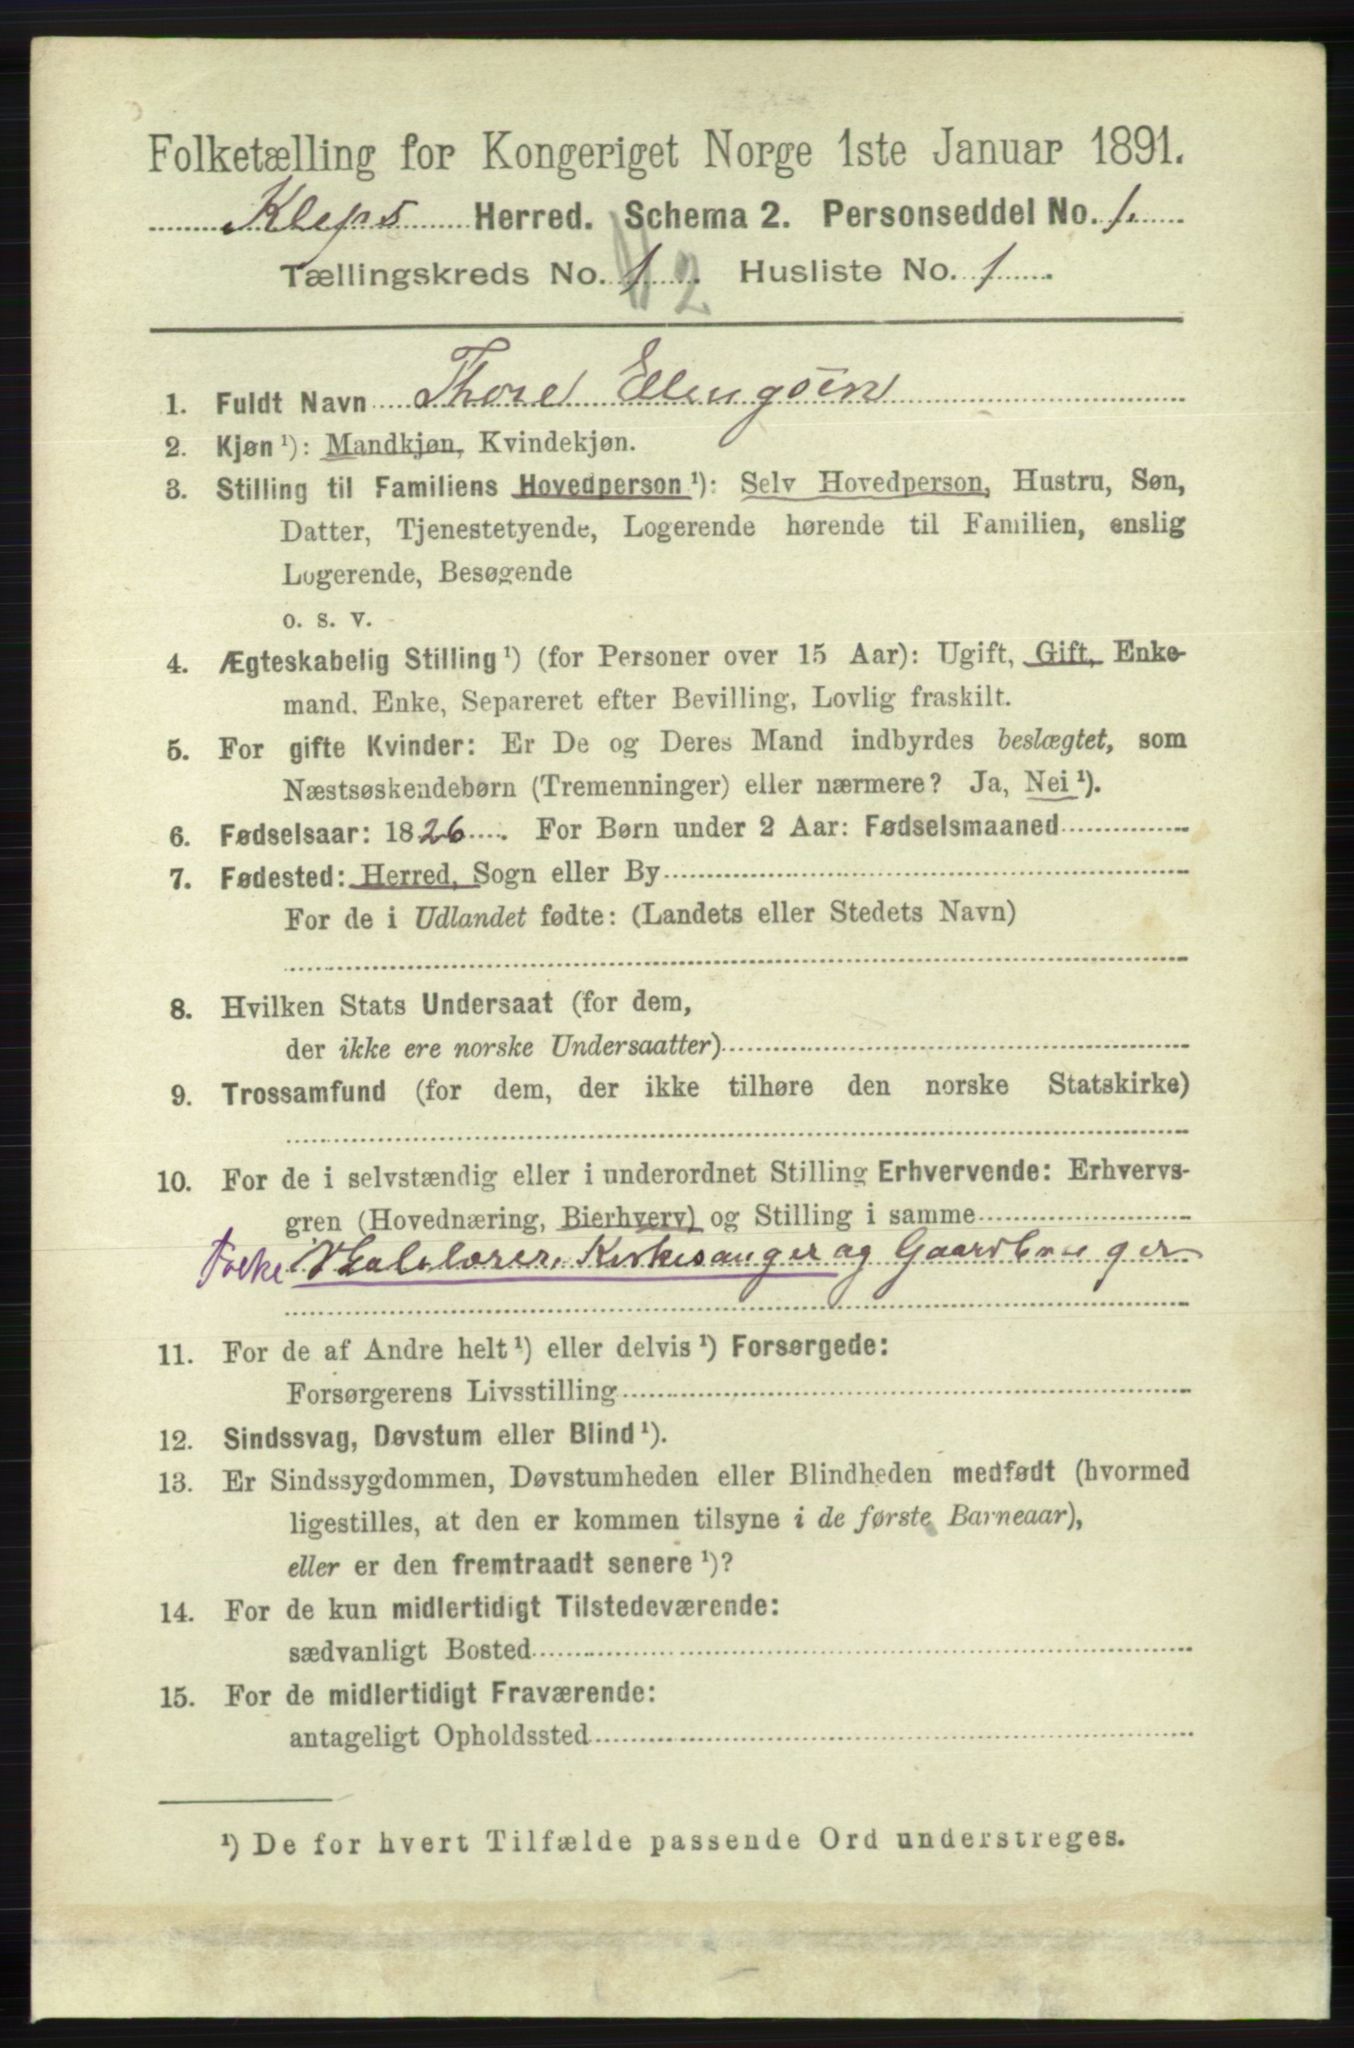 Folketælling for Kongeriget Norge 1ste Januar 1891.
Kleps Herred. Schema 2. Personseddel No. 1.
Tællingskreds No. 1 Husliste No. 1
2
1. Fuldt Navn Thore Ellingsen
2. Kjøn ¹): Mandkjøn, Kvindekjøn.
3. Stilling til Familiens Hovedperson ¹): Selv Hovedperson, Hustru, Søn,
Datter, Tjenestetyende, Logerende hørende til Familien, enslig
Logerende, Besøgende
o. s. v.
4. Ægteskabelig Stilling ¹) (for Personer over 15 Aar): Ugift, Gift, Enke-
mand, Enke, Separeret efter Bevilling, Lovlig fraskilt.
5. For gifte Kvinder: Er De og Deres Mand indbyrdes beslægtet, som
Næstsøskendebørn (Tremenninger) eller nærmere? Ja, Nei ¹).
6. Fødselsaar: 1826. For Børn under 2 Aar: Fødselsmaaned
7. Fødested: Herred, Sogn eller By
For de i Udlandet fødte: (Landets eller Stedets Navn)
8. Hvilken Stats Undersaat (for dem,
der ikke ere norske Undersaatter)
9. Trossamfund (for dem, der ikke tilhøre den norske Statskirke)
10. For de i selvstændig eller i underordnet Stilling Erhvervende: Erhvervs-
gren (Hovednæring, Bierhverv) og Stilling i samme
Folke Skolelærer, Kirkesanger og Gaardbruger
11. For de af Andre helt ¹) eller delvis ¹) Forsørgede:
Forsørgerens Livsstilling
12. Sindssvag, Døvstum eller Blind ¹).
13. Er Sindssygdommen, Døvstumheden eller Blindheden medfødt (hvormed
ligestilles, at den er kommen tilsyne i de første Barneaar),
eller er den fremtraadt senere ¹)?
14. For de kun midlertidigt Tilstedeværende:
sædvanligt Bosted
15. For de midlertidigt Fraværende:
antageligt Opholdssted
¹) De for hvert Tilfælde passende Ord understreges.